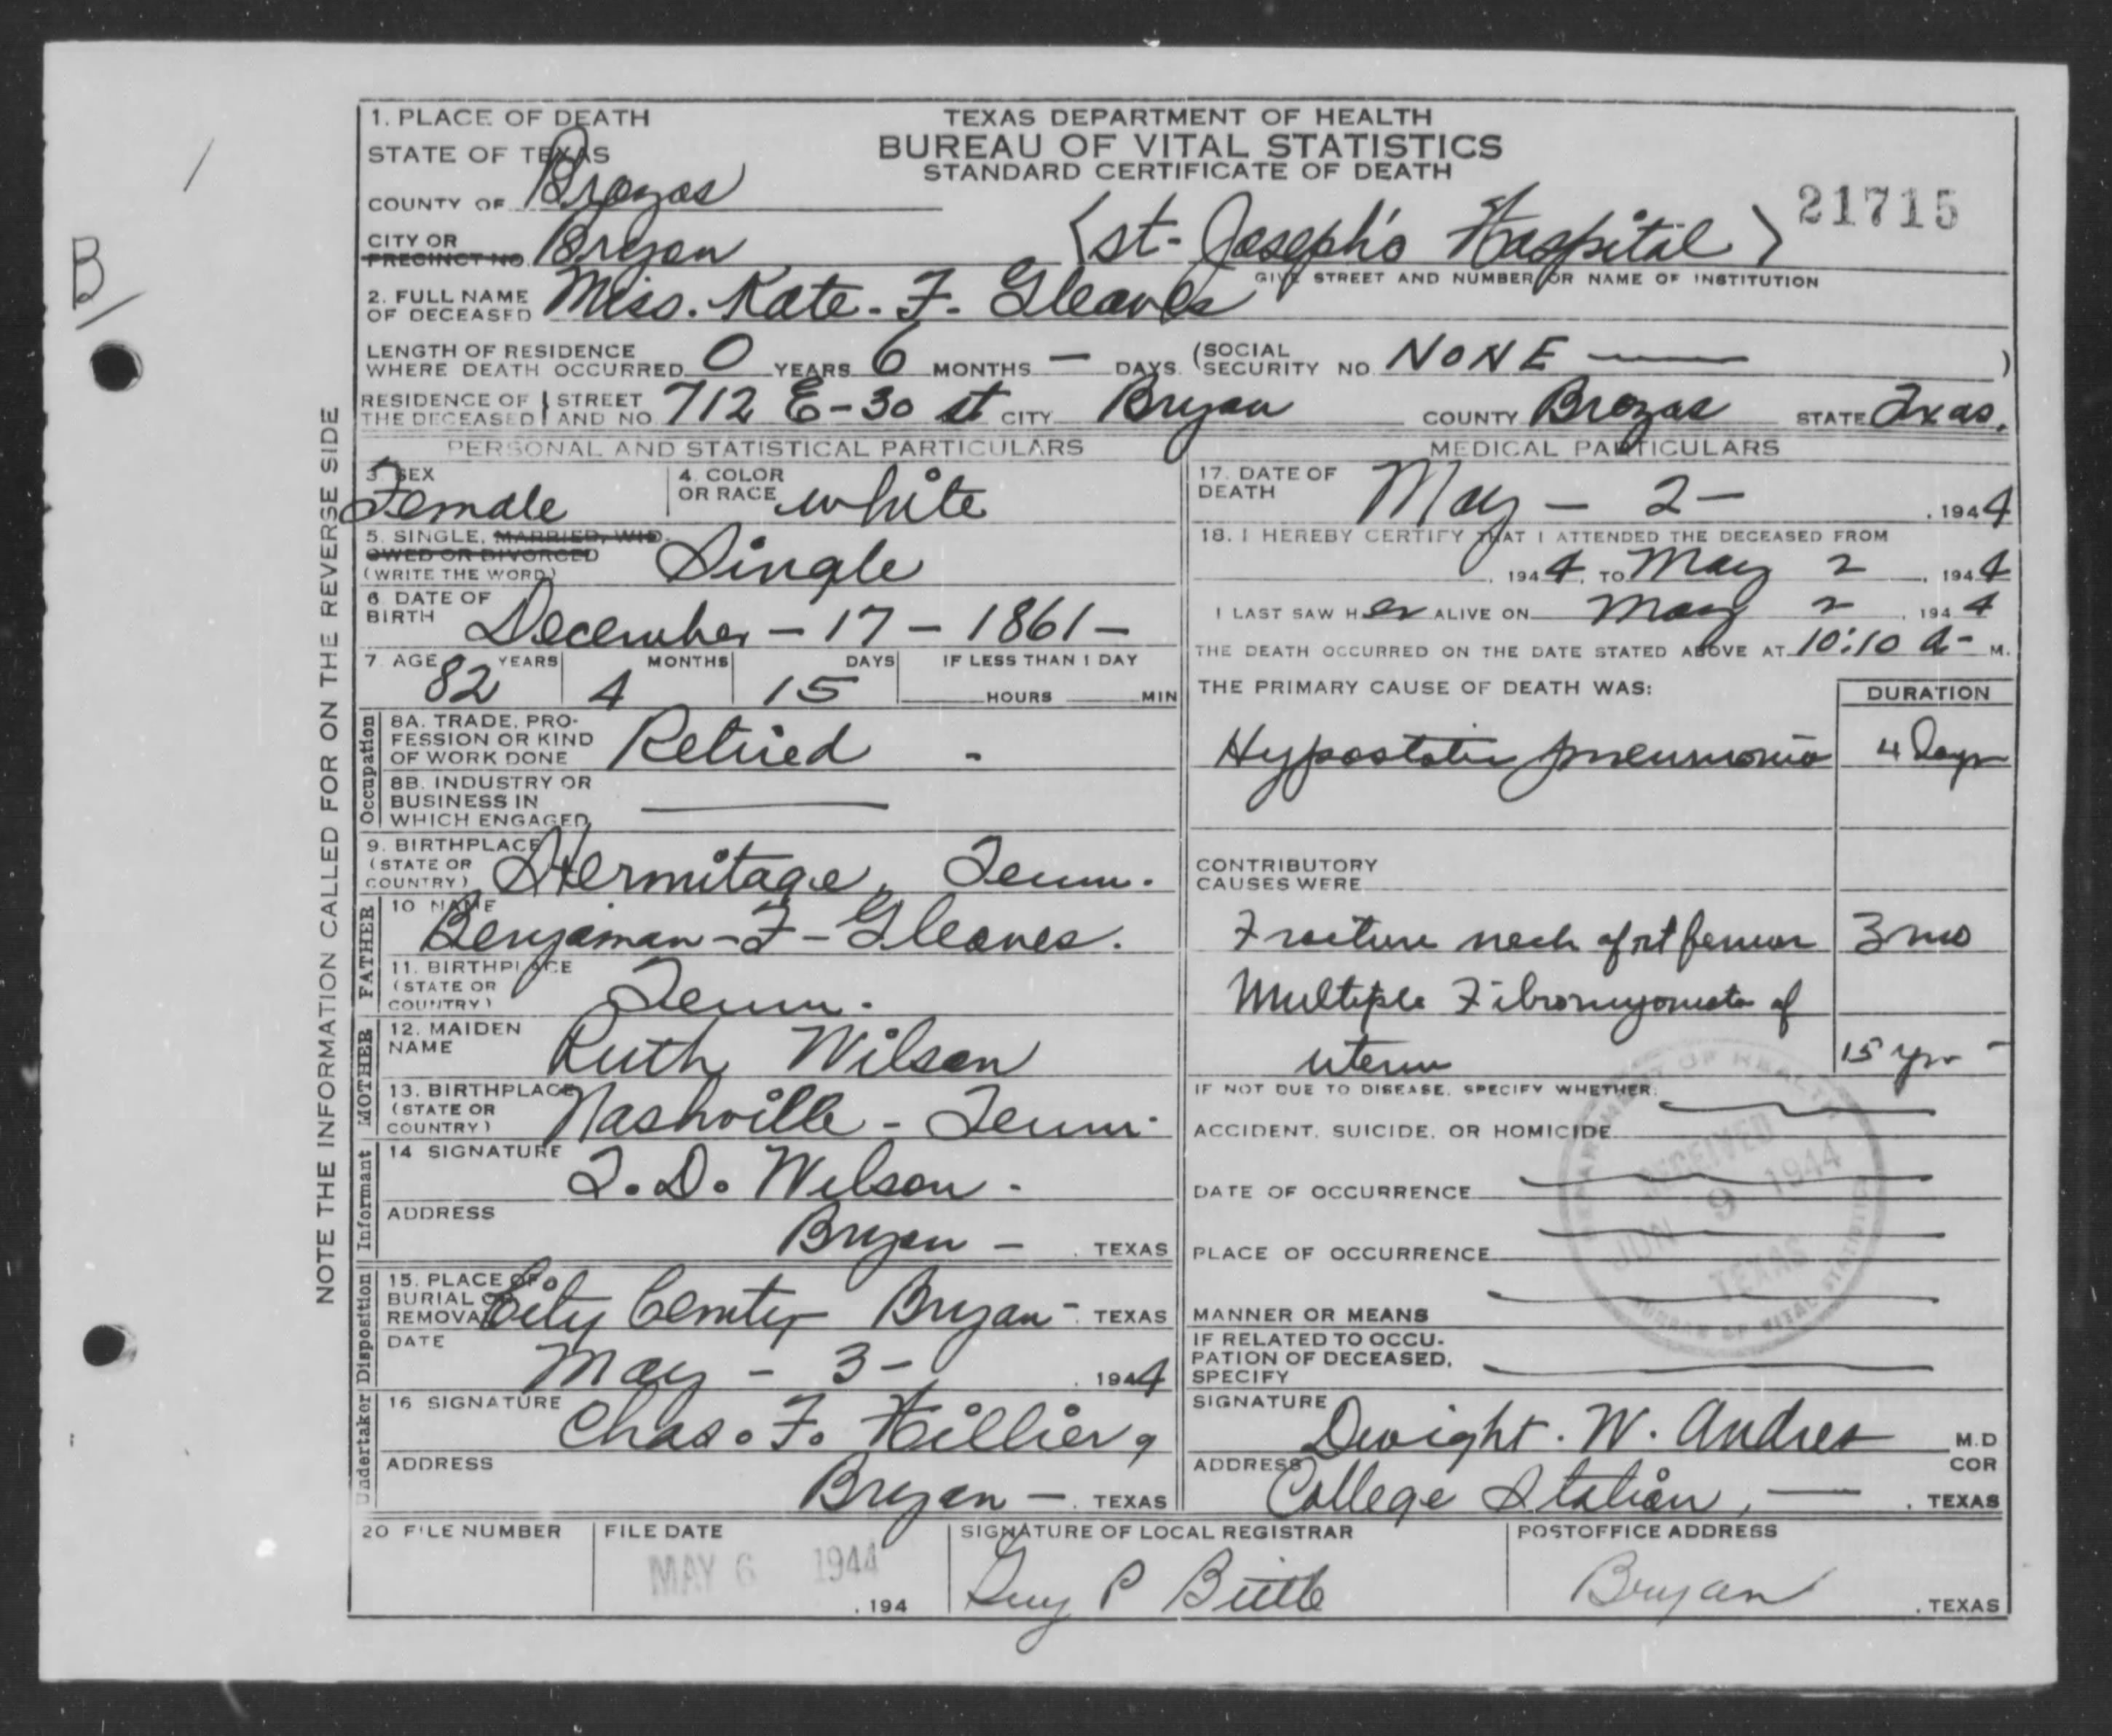 1. PLACE OF DEATH
TEXAS DEPARTMENT OF HEALTH
STATE OF TEXAS
BUREAU OF VITAL STATISTICS
STANDARD CERTIFICATE OF DEATH
COUNTY OF Brazos
21715
CITY OR PRECINCT NO. Bryan (St- Joseph's Hospital)
GIVE STREET AND NUMBER OR NAME OF INSTITUTION
2. FULL NAME OF DECEASED Miss. Kate. F. Gleaves
LENGTH OF RESIDENCE WHERE DEATH OCCURRED 0 YEARS 6 MONTHS — DAYS. (SOCIAL SECURITY NO. NONE —)
RESIDENCE OF THE DECEASED STREET AND NO. 712 E-30 st CITY Bryan COUNTY Brazos STATE Texas.
PERSONAL AND STATISTICAL PARTICULARS
3. SEX Female
4. COLOR OR RACE white
5. SINGLE, MARRIED, WIDOWED OR DIVORCED (WRITE THE WORD) Single
6. DATE OF BIRTH December - 17 - 1861 -
7. AGE 82 YEARS 4 MONTHS 15 DAYS IF LESS THAN 1 DAY HOURS MIN
Occupation
8A. TRADE, PROFESSION OR KIND OF WORK DONE Retired -
8B. INDUSTRY OR BUSINESS IN WHICH ENGAGED —
9. BIRTHPLACE (STATE OR COUNTRY) Hermitage, Tenn.
FATHER
10 NAME Benjaman - F - Gleaves.
11. BIRTHPLACE (STATE OR COUNTRY) Tenn.
MOTHER
12. MAIDEN NAME Ruth Wilson
13. BIRTHPLACE (STATE OR COUNTRY) Nashville - Tenn.
Informant
14 SIGNATURE T. D. Wilson.
ADDRESS Bryan - . TEXAS
Disposition
15. PLACE OF BURIAL OR REMOVAL City Bryan - TEXAS
DATE May - 3 - , 1944
Undertaker
16 SIGNATURE Chas. F. Hillier,
ADDRESS Bryan - . TEXAS
MEDICAL PARTICULARS
17. DATE OF DEATH May - 2 - , 1944
18. I HEREBY CERTIFY THAT I ATTENDED THE DECEASED FROM
, 1944, TO May 2, 1944
I LAST SAW HER ALIVE ON May 2, 1944
THE DEATH OCCURRED ON THE DATE STATED ABOVE AT 10:10 a- M.
THE PRIMARY CAUSE OF DEATH WAS: DURATION
Hypostatic pneumonia 4 Days
CONTRIBUTORY CAUSES WERE
Fracture neck of rt femur 3 mo
Multiple Fibromyomata of
uterus 15 yrs -
IF NOT DUE TO DISEASE, SPECIFY WHETHER:
ACCIDENT, SUICIDE, OR HOMICIDE
DATE OF OCCURRENCE
PLACE OF OCCURRENCE
MANNER OR MEANS
IF RELATED TO OCCUPATION OF DECEASED, SPECIFY
DEPARTMENT OF HEALTH
RECEIVED
JUN 9 1944
TEXAS
BUREAU OF VITAL STATISTICS
SIGNATURE Dwight. W. Andres M.D COR
ADDRESS College Station, — . TEXAS
20 FILE NUMBER
FILE DATE MAY 6 1944 , 194
SIGNATURE OF LOCAL REGISTRAR Guy P Bittle
POSTOFFICE ADDRESS Bryan . TEXAS
NOTE THE INFORMATION CALLED FOR ON THE REVERSE SIDE
B/